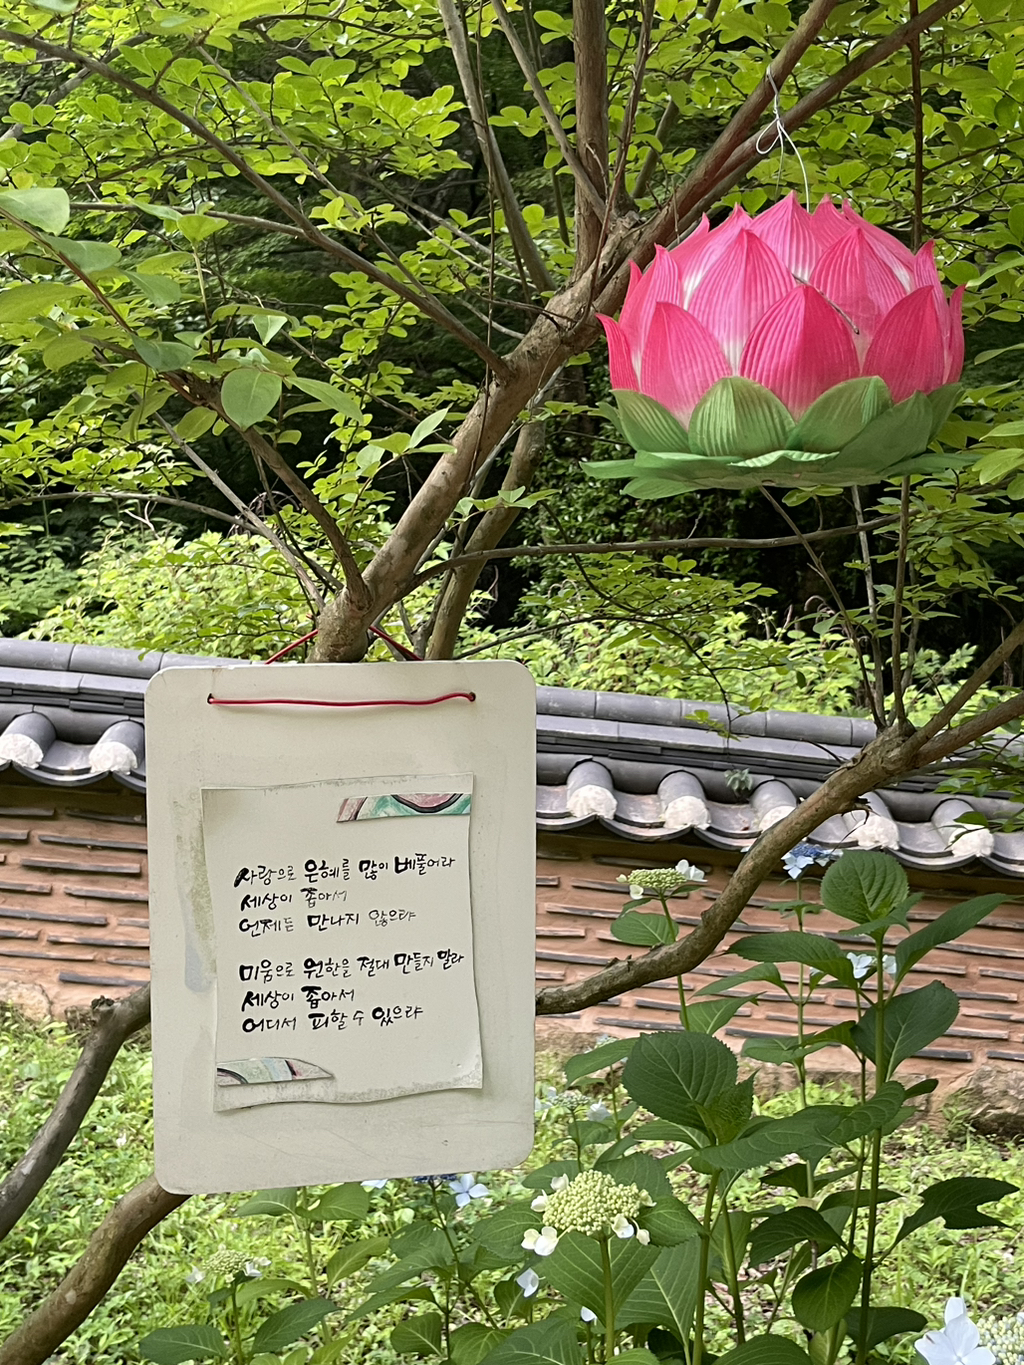 사랑으로 은혜를 많이 베풀어라
세상이 좁아서
언제든 만나지 않으랴
미움으로 원한을 절대 만들지 말라
세상이 좁아서
어디서 피할 수 있으랴